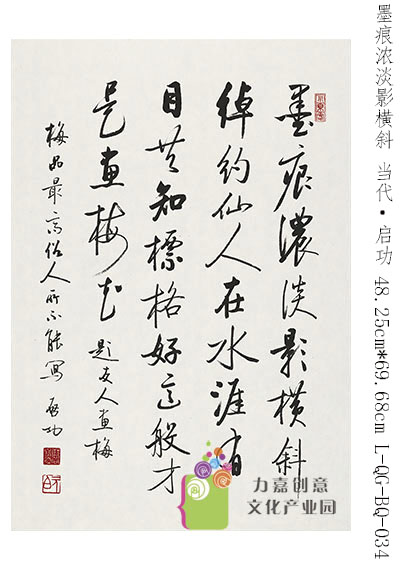 墨痕浓淡影横斜 当代·启功 48.25cm*69.68cm L-QG-BQ-034
墨痕濃淡影橫斜
綽約仙人在水涯有
目共知標格好這般才
是畫梅花 題友人畫梅
梅品最高俗人所不能寫 啟功
力嘉创意
文化产业园